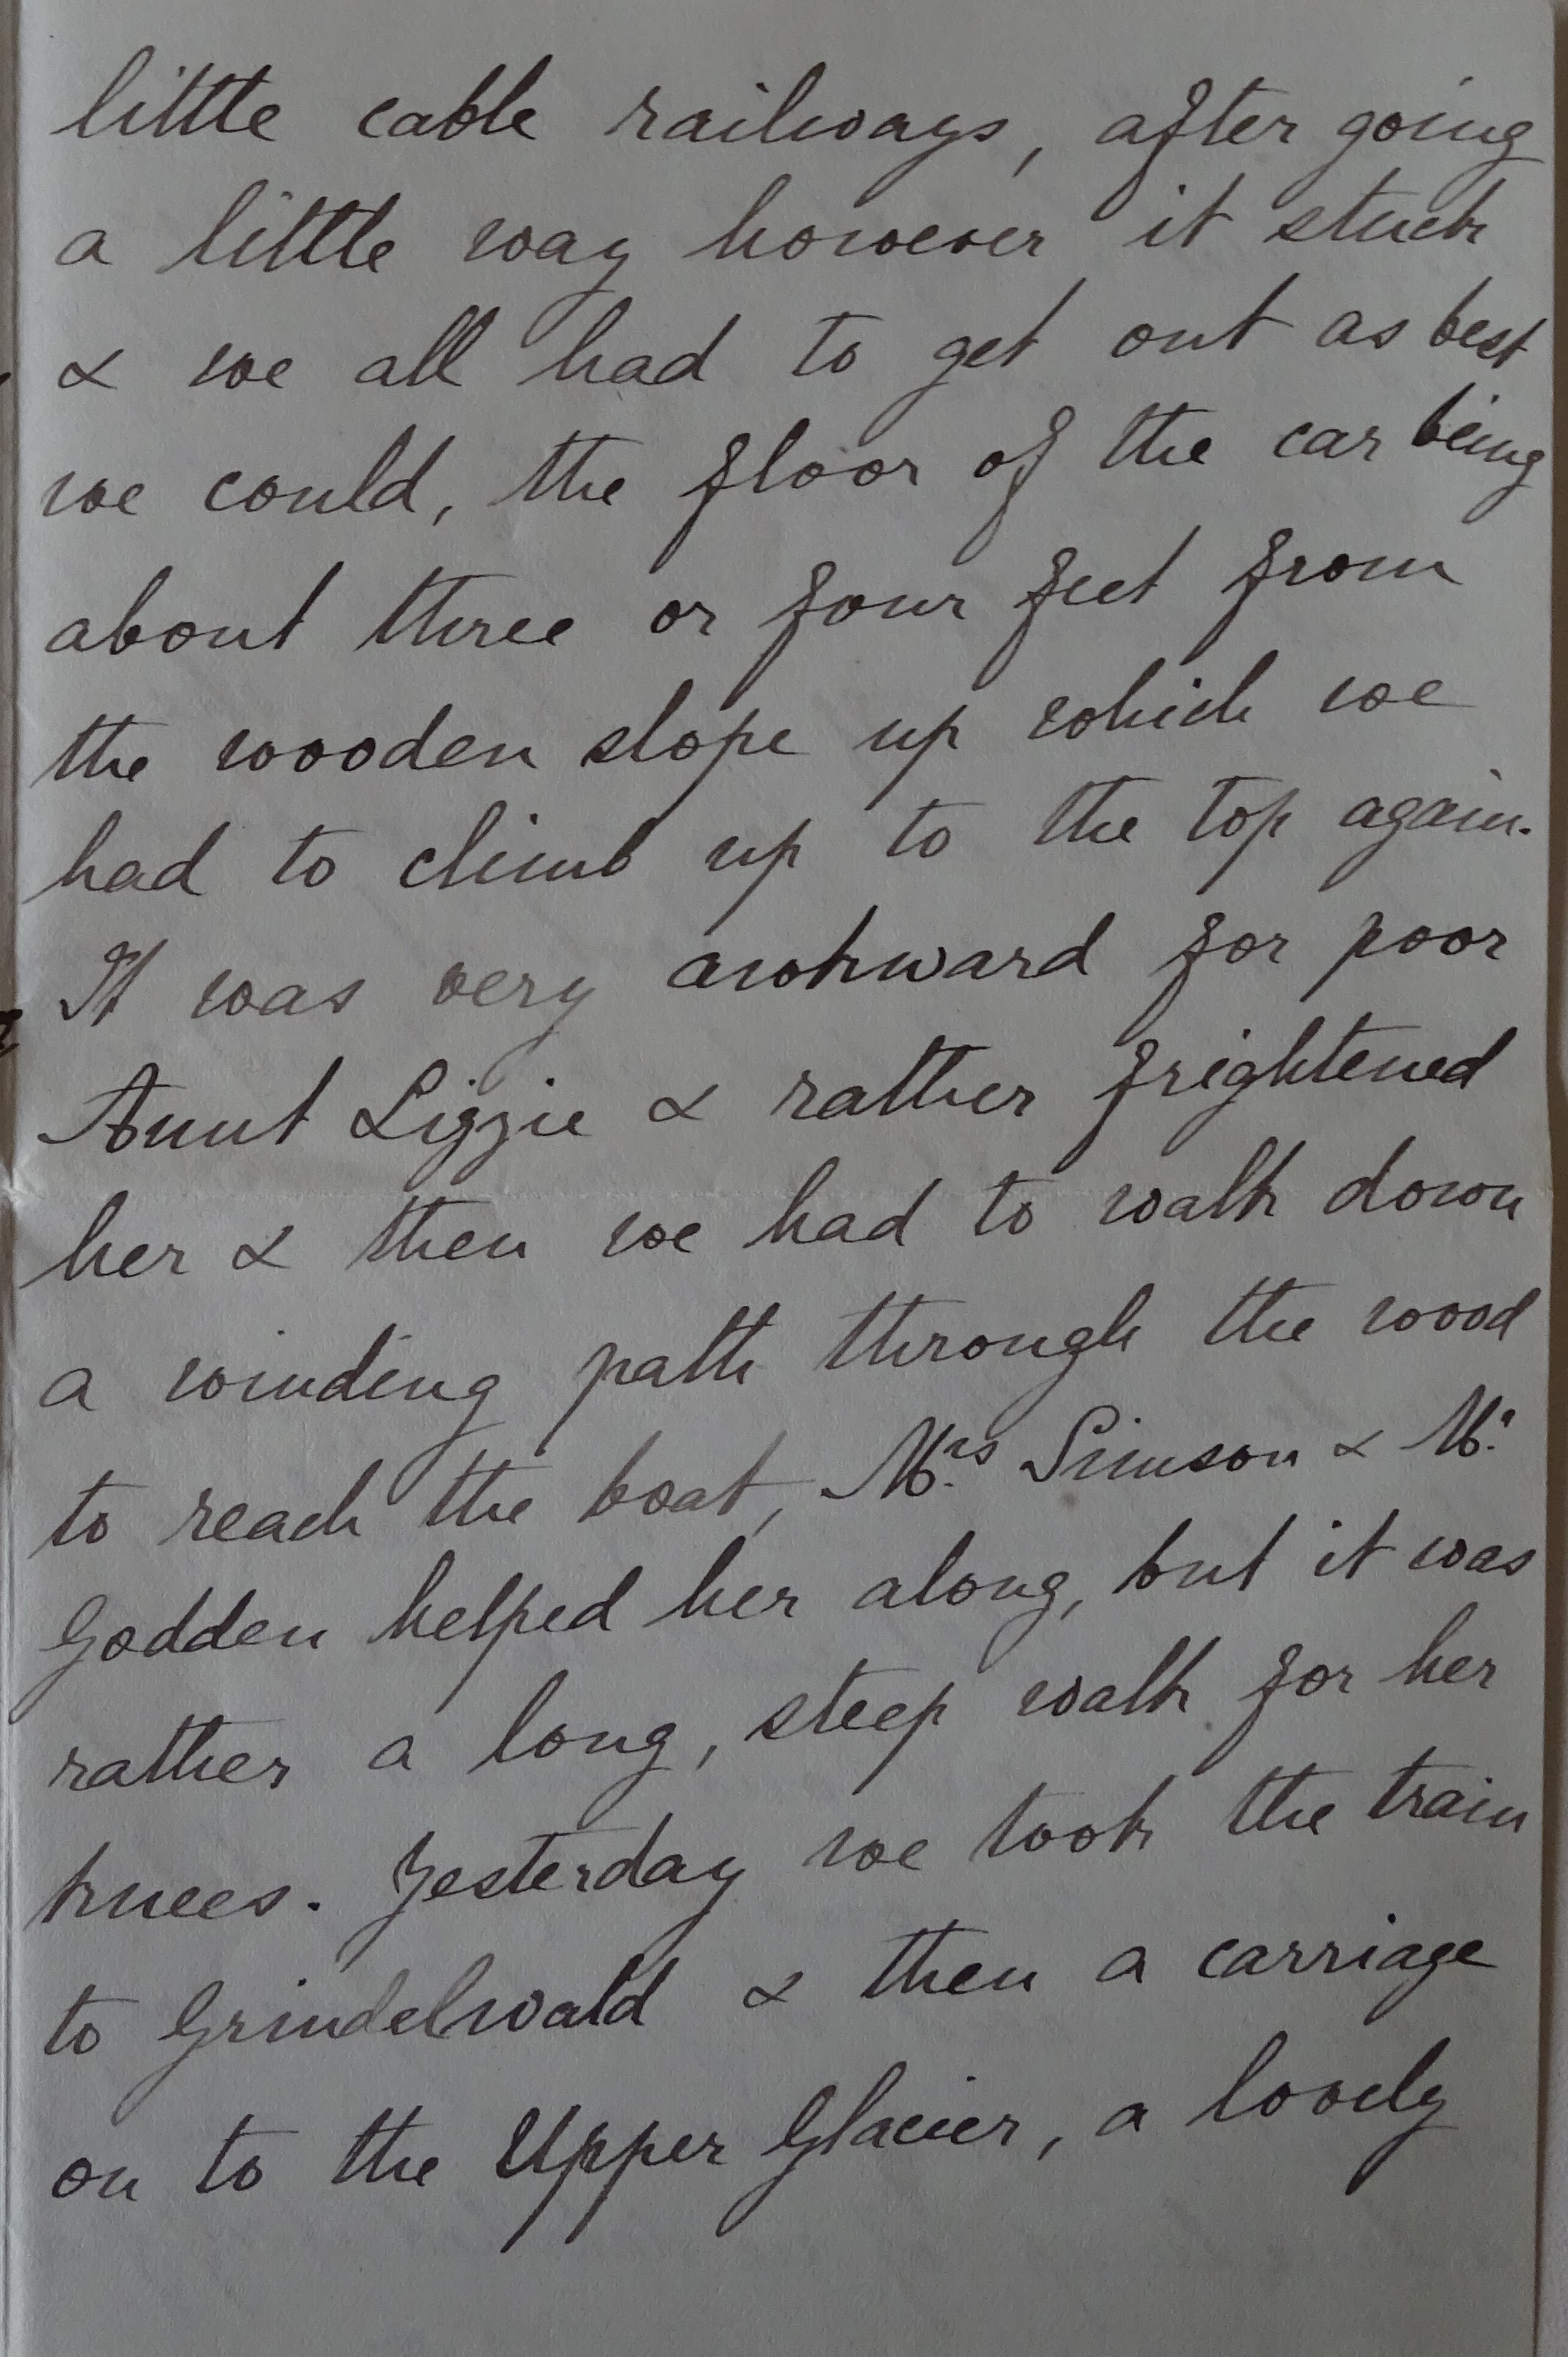 little cable railways, after going
a little way however it stuck
& we all had to get out as best
we could, the floor of the car being
about three or four feet from
the wooden slope up which we
had to climb up to the top again.
It was very awkward for poor
Aunt Lizzie & rather frightened
her & then we had to walk down
a winding path through the wood
to reach the boat, Mrs. Simson & Mr.
Godden helped her along, but it was
rather a long, steep walk for her
knees. Yesterday we took the train
to Grindelwald & then a carriage
on to the Upper Glacier, a lovely